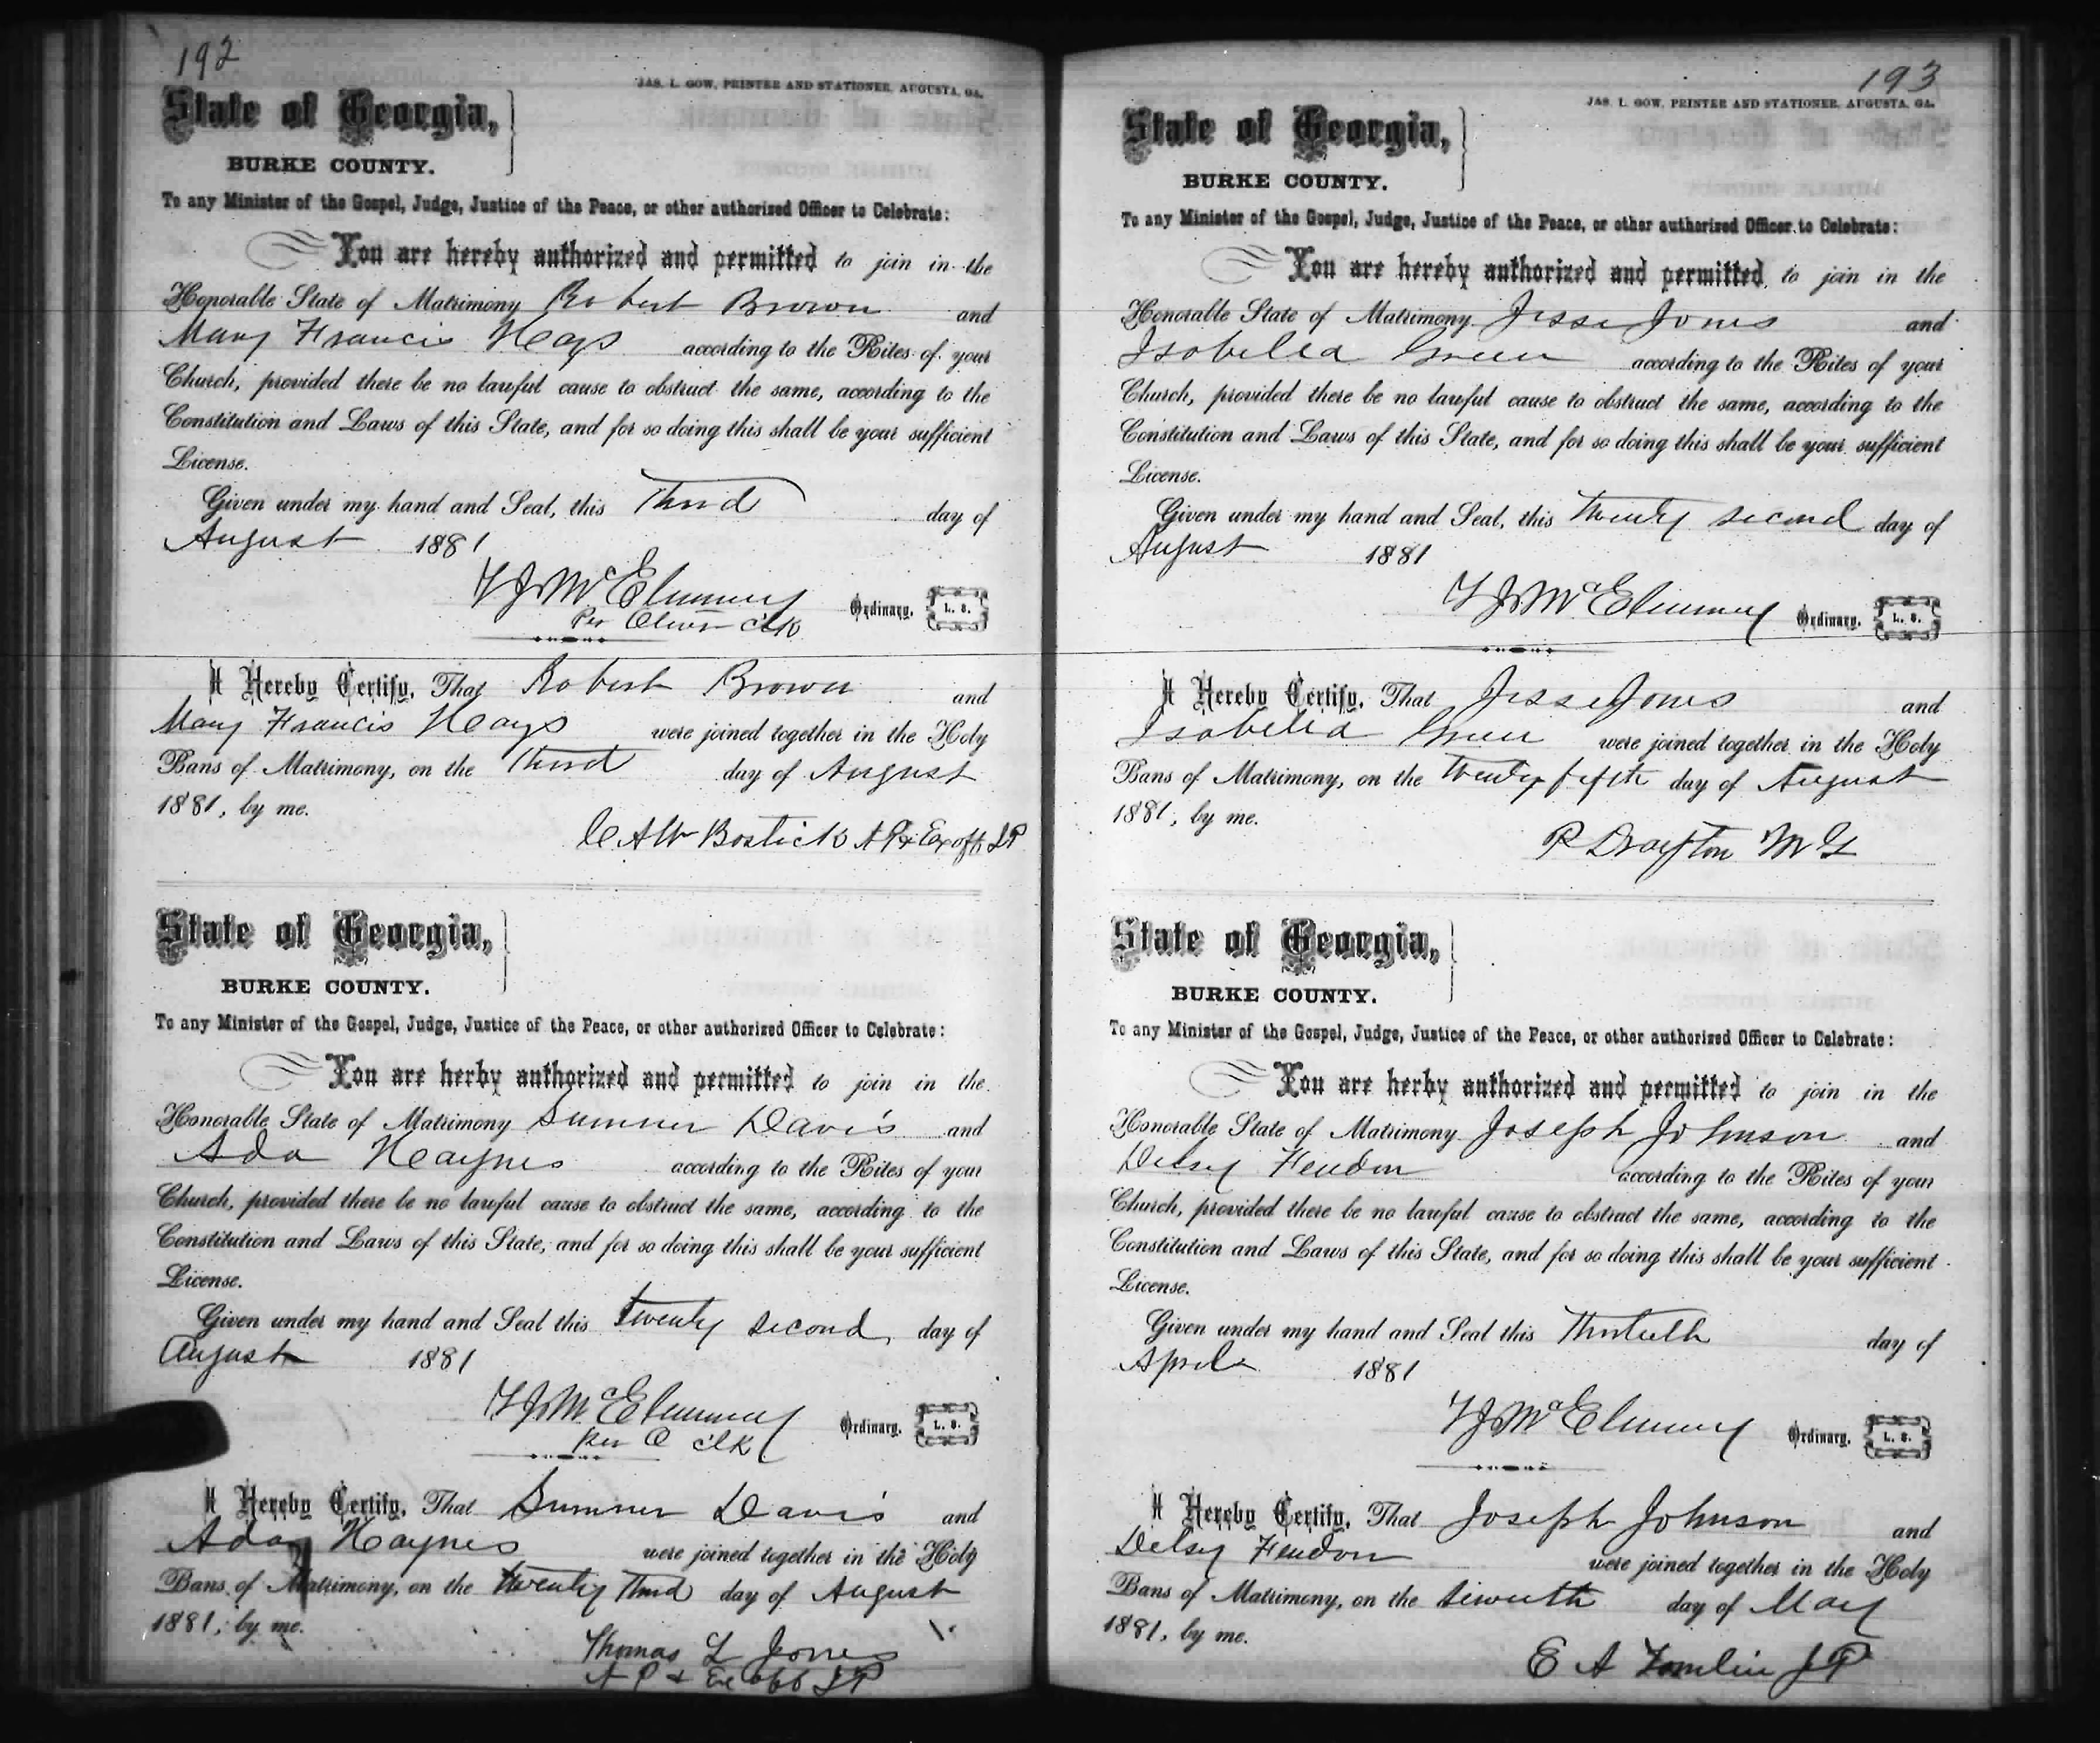 192
JAS. L. GOW, PRINTER AND STATIONER, AUGUSTA, GA.
State of Georgia,
BURKE COUNTY.
To any Minister of the Gospel, Judge, Justice of the Peace, or other authorized Officer to Celebrate:
You are hereby authorized and permitted to join in the
Honorable State of Matrimony Robert Brown and
Mary Francis Hays according to the Rites of your
Church, provided there be no lawful cause to obstruct the same, according to the
Constitution and Laws of this State, and for so doing this shall be your sufficient
License.
Given under my hand and Seal, this Third day of
August 1881
McElmurray
Per Oliver clk Ordinary. L. S.
I Hereby Certify, That Robert Brown and
Mary Francis Hays were joined together in the Holy
Bans of Matrimony, on the Third day of August
1881, by me.
C A W Bostick N P & Ex off J P
State of Georgia,
BURKE COUNTY.
To any Minister of the Gospel, Judge, Justice of the Peace, or other authorized Officer to Celebrate:
You are herby authorized and permitted to join in the
Honorable State of Matrimony Sumner Davis and
Ada Haynes according to the Rites of your
Church, provided there be no lawful cause to obstruct the same, according to the
Constitution and Laws of this State, and for so doing this shall be your sufficient
License.
Given under my hand and Seal this twenty second day of
August 1881
McElmurray
Per O clk Ordinary. L. S.
I Hereby Certify, That Sumner Davis and
Ada Haynes were joined together in the Holy
Bans of Matrimony, on the twenty Third day of August
1881, by me.
Thomas L Jones
N P & Ex off J P
193
JAS. L. GOW, PRINTER AND STATIONER, AUGUSTA, GA.
State of Georgia,
BURKE COUNTY.
To any Minister of the Gospel, Judge, Justice of the Peace, or other authorized Officer to Celebrate:
You are hereby authorized and permitted to join in the
Honorable State of Matrimony Jesse Jones and
Isabella Green according to the Rites of your
Church, provided there be no lawful cause to obstruct the same, according to the
Constitution and Laws of this State, and for so doing this shall be your sufficient
License.
Given under my hand and Seal, this twenty second day of
August 1881
McElmurray Ordinary. L. S.
I Hereby Certify, That Jesse Jones and
Isabella Green were joined together in the Holy
Bans of Matrimony, on the twenty fifth day of August
1881, by me.
R Drayton M G
State of Georgia,
BURKE COUNTY.
To any Minister of the Gospel, Judge, Justice of the Peace, or other authorized Officer to Celebrate:
You are herby authorized and permitted to join in the
Honorable State of Matrimony Joseph Johnson and
Delsy Fendon according to the Rites of your
Church, provided there be no lawful cause to obstruct the same, according to the
Constitution and Laws of this State, and for so doing this shall be your sufficient
License.
Given under my hand and Seal this Thirtieth day of
April 1881
McElmurray Ordinary. L. S.
I Hereby Certify, That Joseph Johnson and
Delsy Fendon were joined together in the Holy
Bans of Matrimony, on the seventh day of May
1881, by me.
E A Tomlin J P